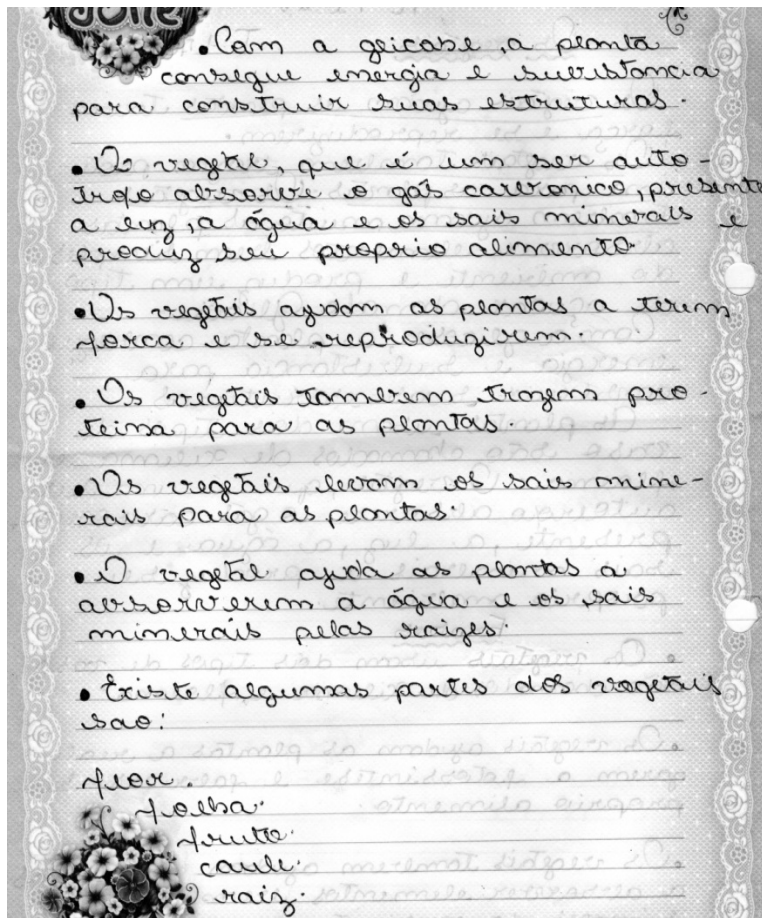 Jolie
• Com a glicose, a planta
consegue energia e subistancia
para construir suas estruturas.
• O vegetal, que é um ser auto-
trofo absorve o gás carbonico, presente
a luz, a água e os sais minerais e
produz seu proprio alimento.
• Os vegetais ajudam as plantas a terem
forca e se reproduzirem.
• Os vegetais tambem trazem pro-
teina para as plantas.
• Os vegetais levam os sais mine-
rais para as plantas.
• O vegetal ajuda as plantas a
absorverem a água e os sais
minerais pelas raizes.
• Existe algumas partes dos vegetais
sao:
flor.
folha.
fruto.
caule.
raiz.